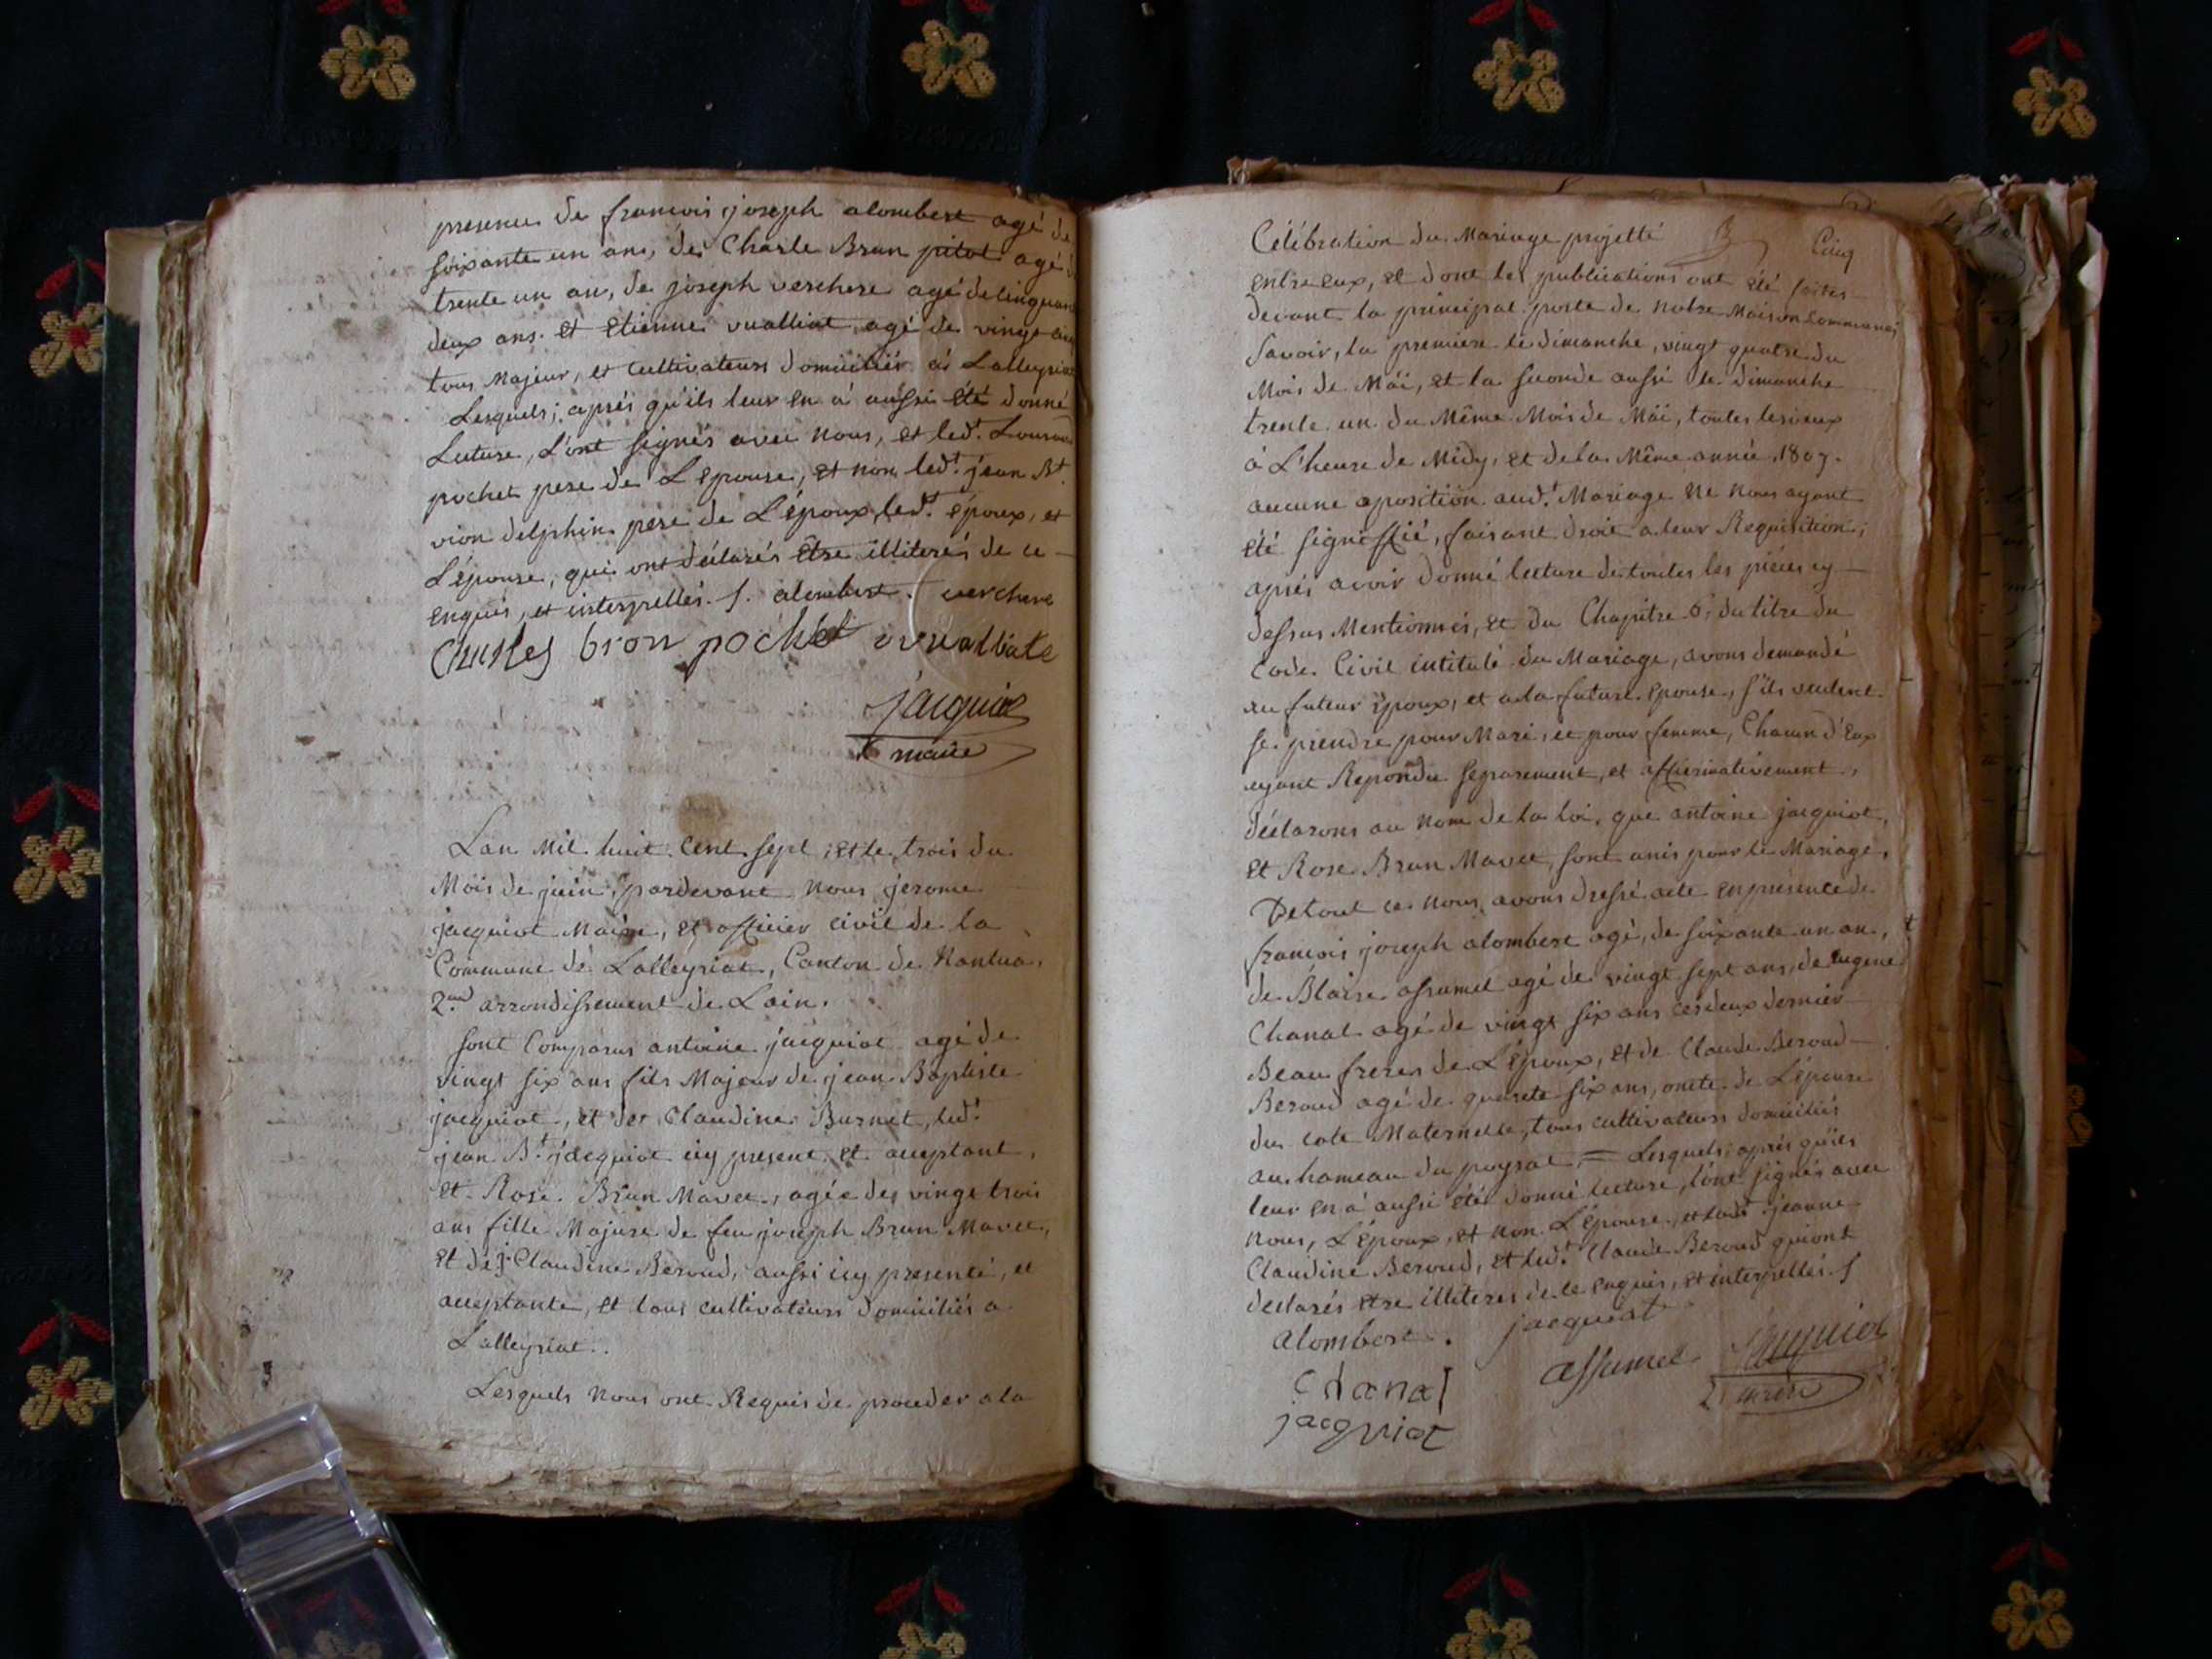 presence de francois joseph alombert agé de
soixante un ans, de Charle Brun pitot agé de
trente un an, de joseph verchere agé de cinquante
deux ans. et Etienne vualliat agé de vingt cinq
tous Majeur, et cultivateurs domiciliér à Lalleyriat
Lesquels; aprés qu'ils leur en à aussi été donné
Lecture, L'ont signés avec nous, et led.t
pochet pere de L'Epouse, et non led.t jean B.t
vion delphin pere de L'époux, led.t époux, et
L'épouse, qui ont déclarés être illiterés de ce
enquis, et interpellés. f. alombert. verchere
Charles bron pochet vvualliate
jacquiot
maire
Lan Mil huit Cent sept, et le trois du
Mois de juin, pardevant nous jerome
jacquiot Maire, et officier civil de la
Commune de Lalleyriat, Canton de Nantua,
2.me arrondissement de Lain.
sont Comparus antoine jacquiot agé de
vingt six ans fils Majeur de jean Baptiste
jacquiot, et de Claudine Burnet, led.t
jean B.t jacquiot icy present et acceptant,
et Rose Brun Mavet, agée de vingt trois
ans fille Majure de feu joseph Brun Mavet,
et de j. Claudine Beroud, aussi icy presenté, et
acceptante, et tous cultivateurs domiciliés a
Lalleyriat..
Lesquels nous ont Requis de proceder a la
Célébration du Mariage projetté
Cinq
entre eux, et dont les publications ont été faites
devant la principal porte de notre Maison Commune;
Savoir, la premiere le dimanche, vingt quatre du
Mois de Mäi, et la seconde aussi le dimanche
trente un du Même Mois de Mäi, toutes les
à L'heure de Midy, et de la Même année 1807.
aucune oposition aud.t Mariage ne nous ayant
été signiffié, faisant droit a leur Requisition;
aprés avoir donné lecture de toutes les piéces cy
dessus Mentionnés, et du Chapitre 6, du titre du
Code Civil intitulé du Mariage, avons demandé
au futeur Epoux, et a la future Epouse, s'ils veulent
se prendre pour Mari, et pour femme, Chacun d'Eux
ayant Repondu separement, et affirmativement,
déclarons au nom de la loi, que antoine jacquiot,
et Rose Brun Mavet, sont unis pour le Mariage,
De tout ce nous avons dressé acte en présence de
francois joseph alombert agé, de soixante un an,
de Blaise assumel agé de vingt sept ans, de Eugene
Chanal agé de vingt six ans ces deux dernier
Beau freres de L'Epoux, et de Claude Beroud
Beroud agé de quarete six ans, oncle de L'épouse
du coté Maternelle, tous cultivateurs domiciliés
au hameau du poysat, = Lesquels; aprés qu'ils
leur en à aussi été donné lecture, l'ont signés avec
nous, L'époux, et non L'Epouse, et lad.t jeanne
Claudine Beroud, et led.t Claude Beroud qui ont
declarés etre illiteres de ce enquis, et interpellés. f
alombert. jacquiot
assumel jacquiot
Chanal maire
jacquiot